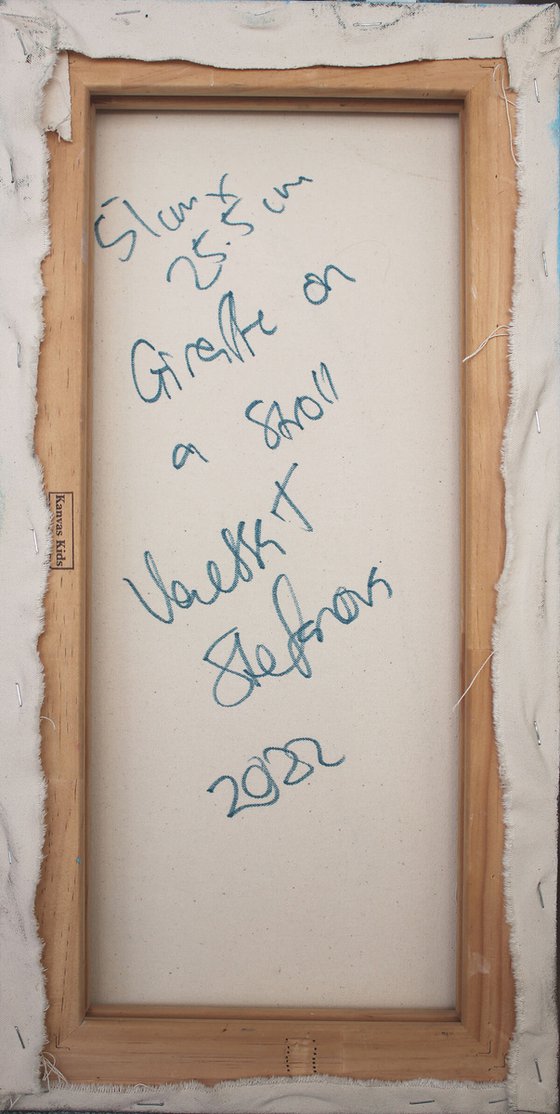 51cm x
25.5cm
Giraffe on
a Stroll
T
Stefanova
2022
Kanvas Kids